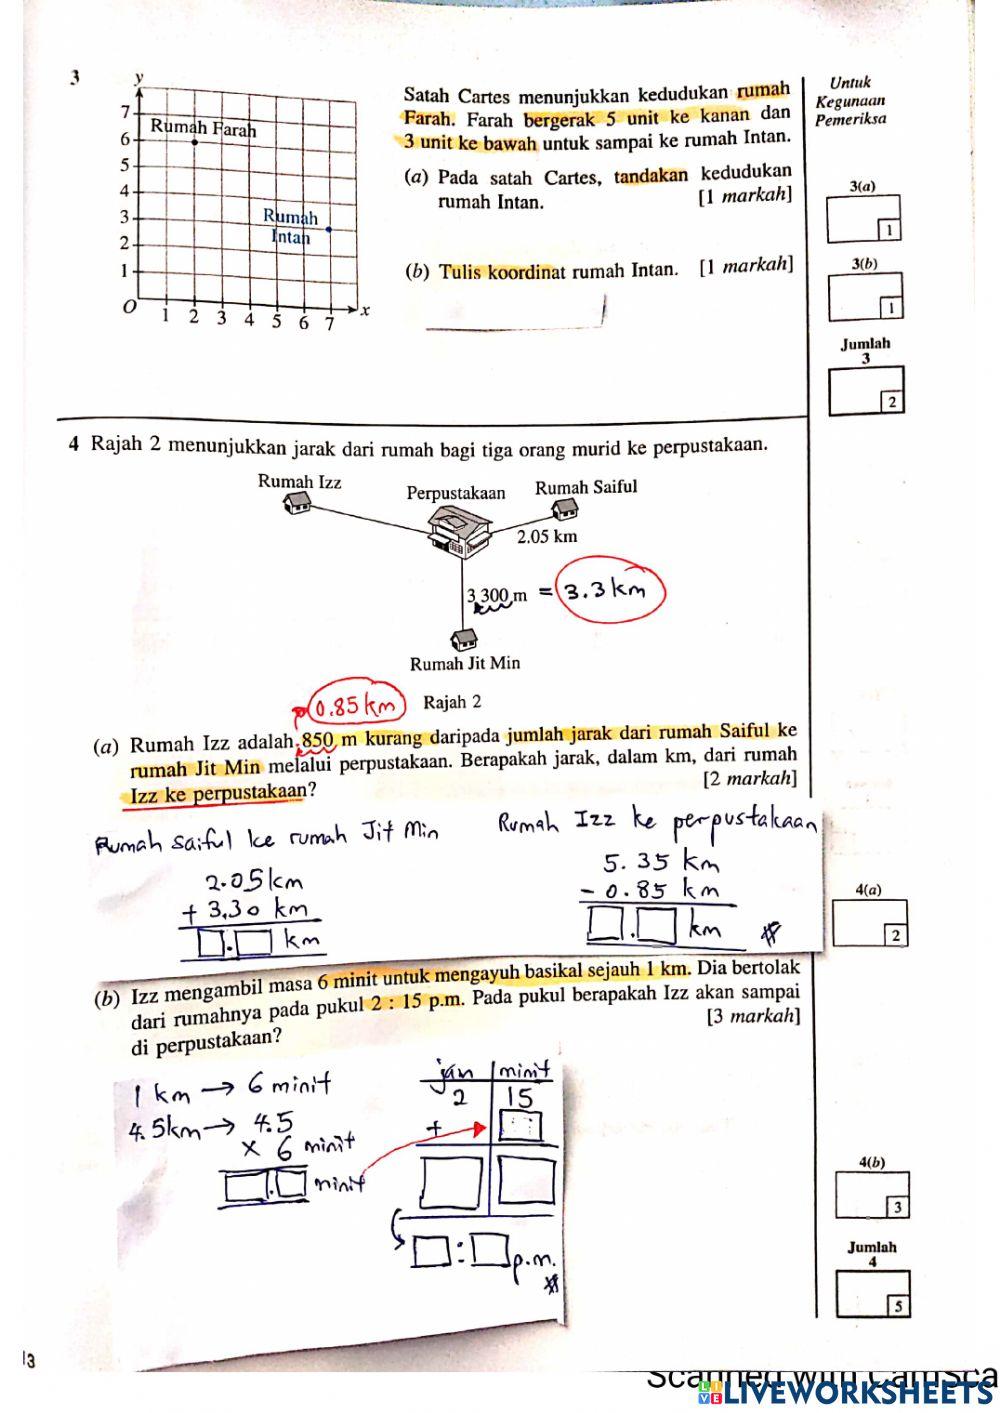 3
y
7
6
5
4
3
2
1
O
1 2 3 4 5 6 7
x
Rumah Farah
Rumah
Intan
Satah Cartes menunjukkan kedudukan rumah
Farah. Farah bergerak 5 unit ke kanan dan
3 unit ke bawah untuk sampai ke rumah Intan.
(a) Pada satah Cartes, tandakan kedudukan
rumah Intan. [1 markah]
(b) Tulis koordinat rumah Intan. [1 markah]
Untuk
Kegunaan
Pemeriksa
3(a)
1
3(b)
1
Jumlah
3
2
4 Rajah 2 menunjukkan jarak dari rumah bagi tiga orang murid ke perpustakaan.
Rumah Izz
Perpustakaan
Rumah Saiful
2.05 km
3 300 m = 3.3 km
Rumah Jit Min
0.85 km
Rajah 2
(a) Rumah Izz adalah 850 m kurang daripada jumlah jarak dari rumah Saiful ke
rumah Jit Min melalui perpustakaan. Berapakah jarak, dalam km, dari rumah
Izz ke perpustakaan? [2 markah]
Rumah Saiful ke rumah Jit Min
2.05 km
+ 3.30 km
. km
Rumah Izz ke perpustakaan
5.35 km
- 0.85 km
. km
4(a)
2
(b) Izz mengambil masa 6 minit untuk mengayuh basikal sejauh 1 km. Dia bertolak
dari rumahnya pada pukul 2 : 15 p.m. Pada pukul berapakah Izz akan sampai
di perpustakaan? [3 markah]
1 km → 6 minit
4.5km → 4.5
x 6 minit
. minit
jam minit
2 15
+
: p.m.
4(b)
3
Jumlah
4
5
13
Scanned with CamSca
LIVEWORKSHEETS